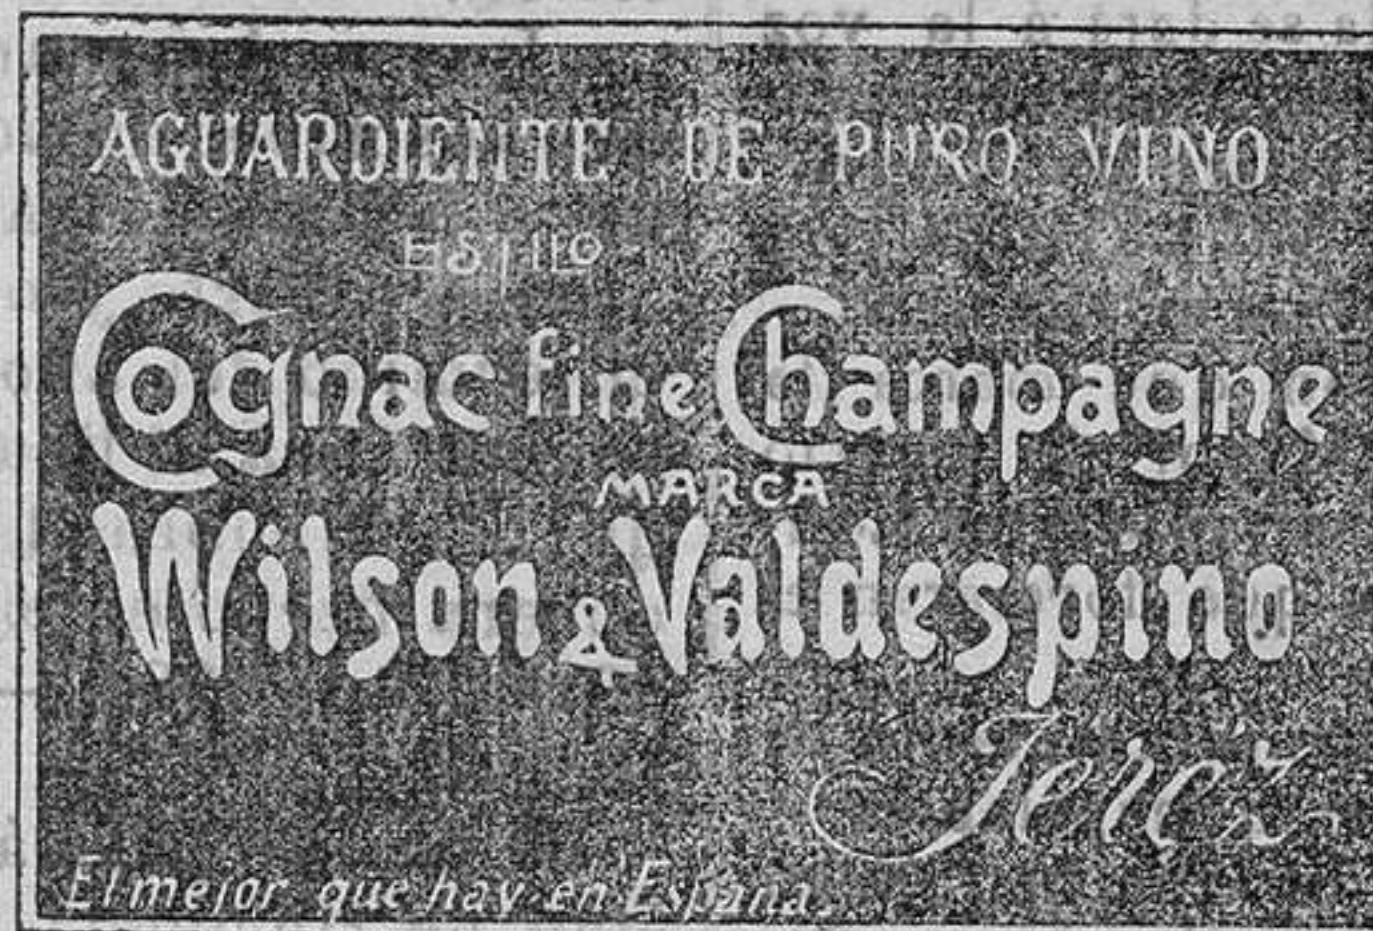 AGUARDIENTE DE PURO VINO
ESTILO
Cognac fine Champagne
MARCA
Wilson & Valdespino
Jerez
El mejor que hay en España.